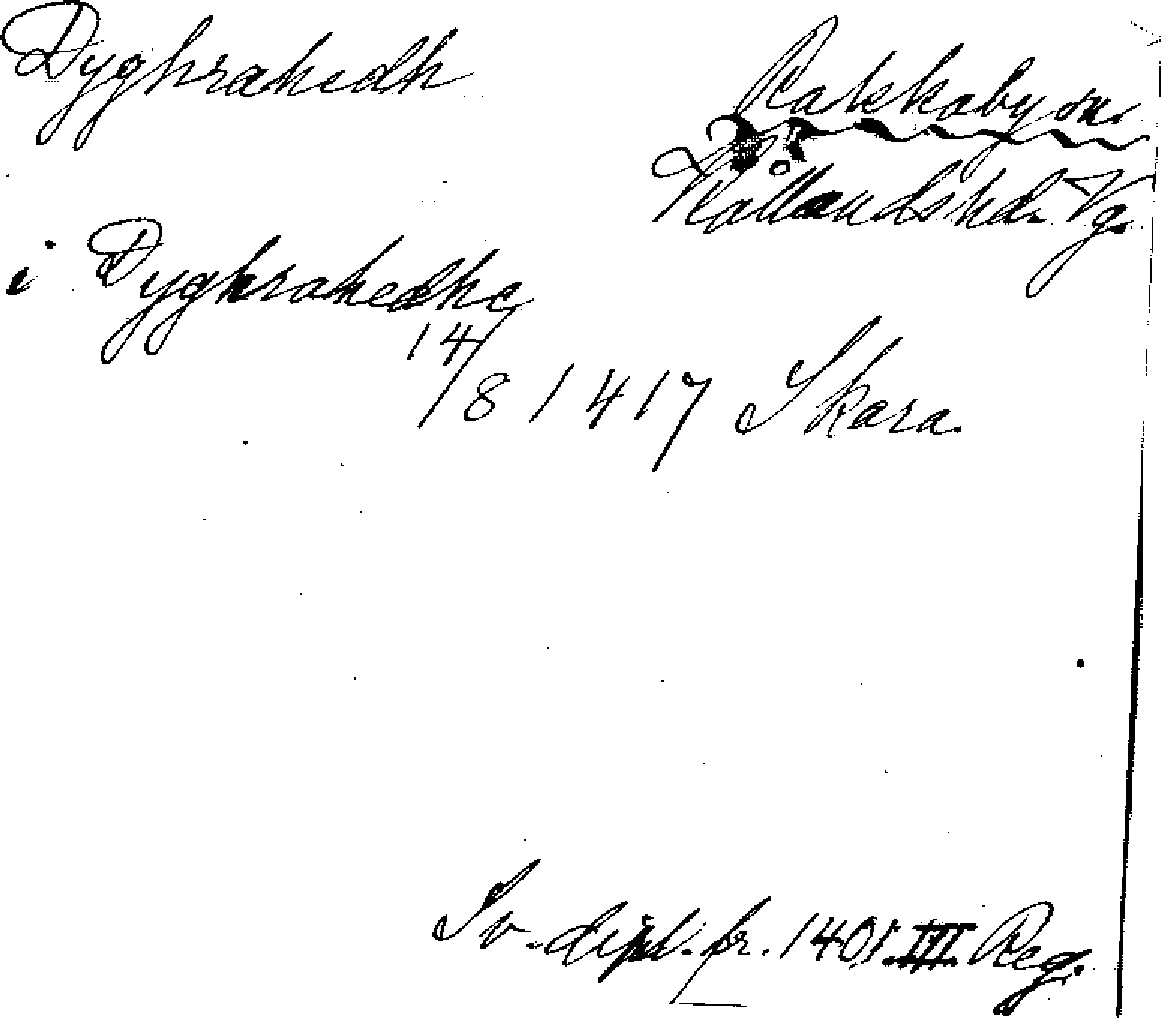 Dyghrahedh
Rakkaby sn.
Kållands hd. Vg.
i Dyghrahedhe
14/8 1417 Skara.
Sv. dipl. fr. 1401. III. Reg.